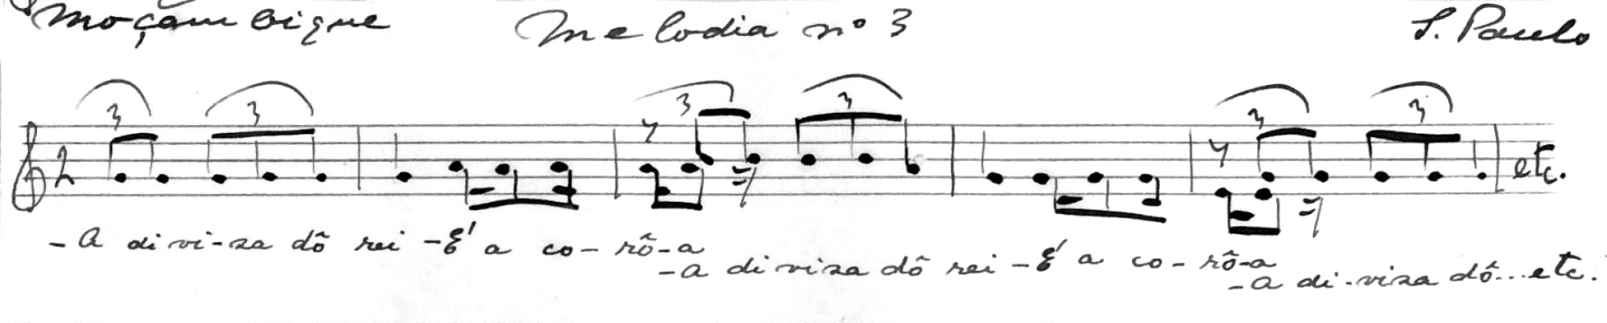 Moçambique Melodia nº 3 S. Paulo
3 3 3 3 3 3
2 etc.
- A di vi - za dô rei - É a co - rô - a
- A di viza dô rei - É a co - rô - a
- A di - viza dô... etc.